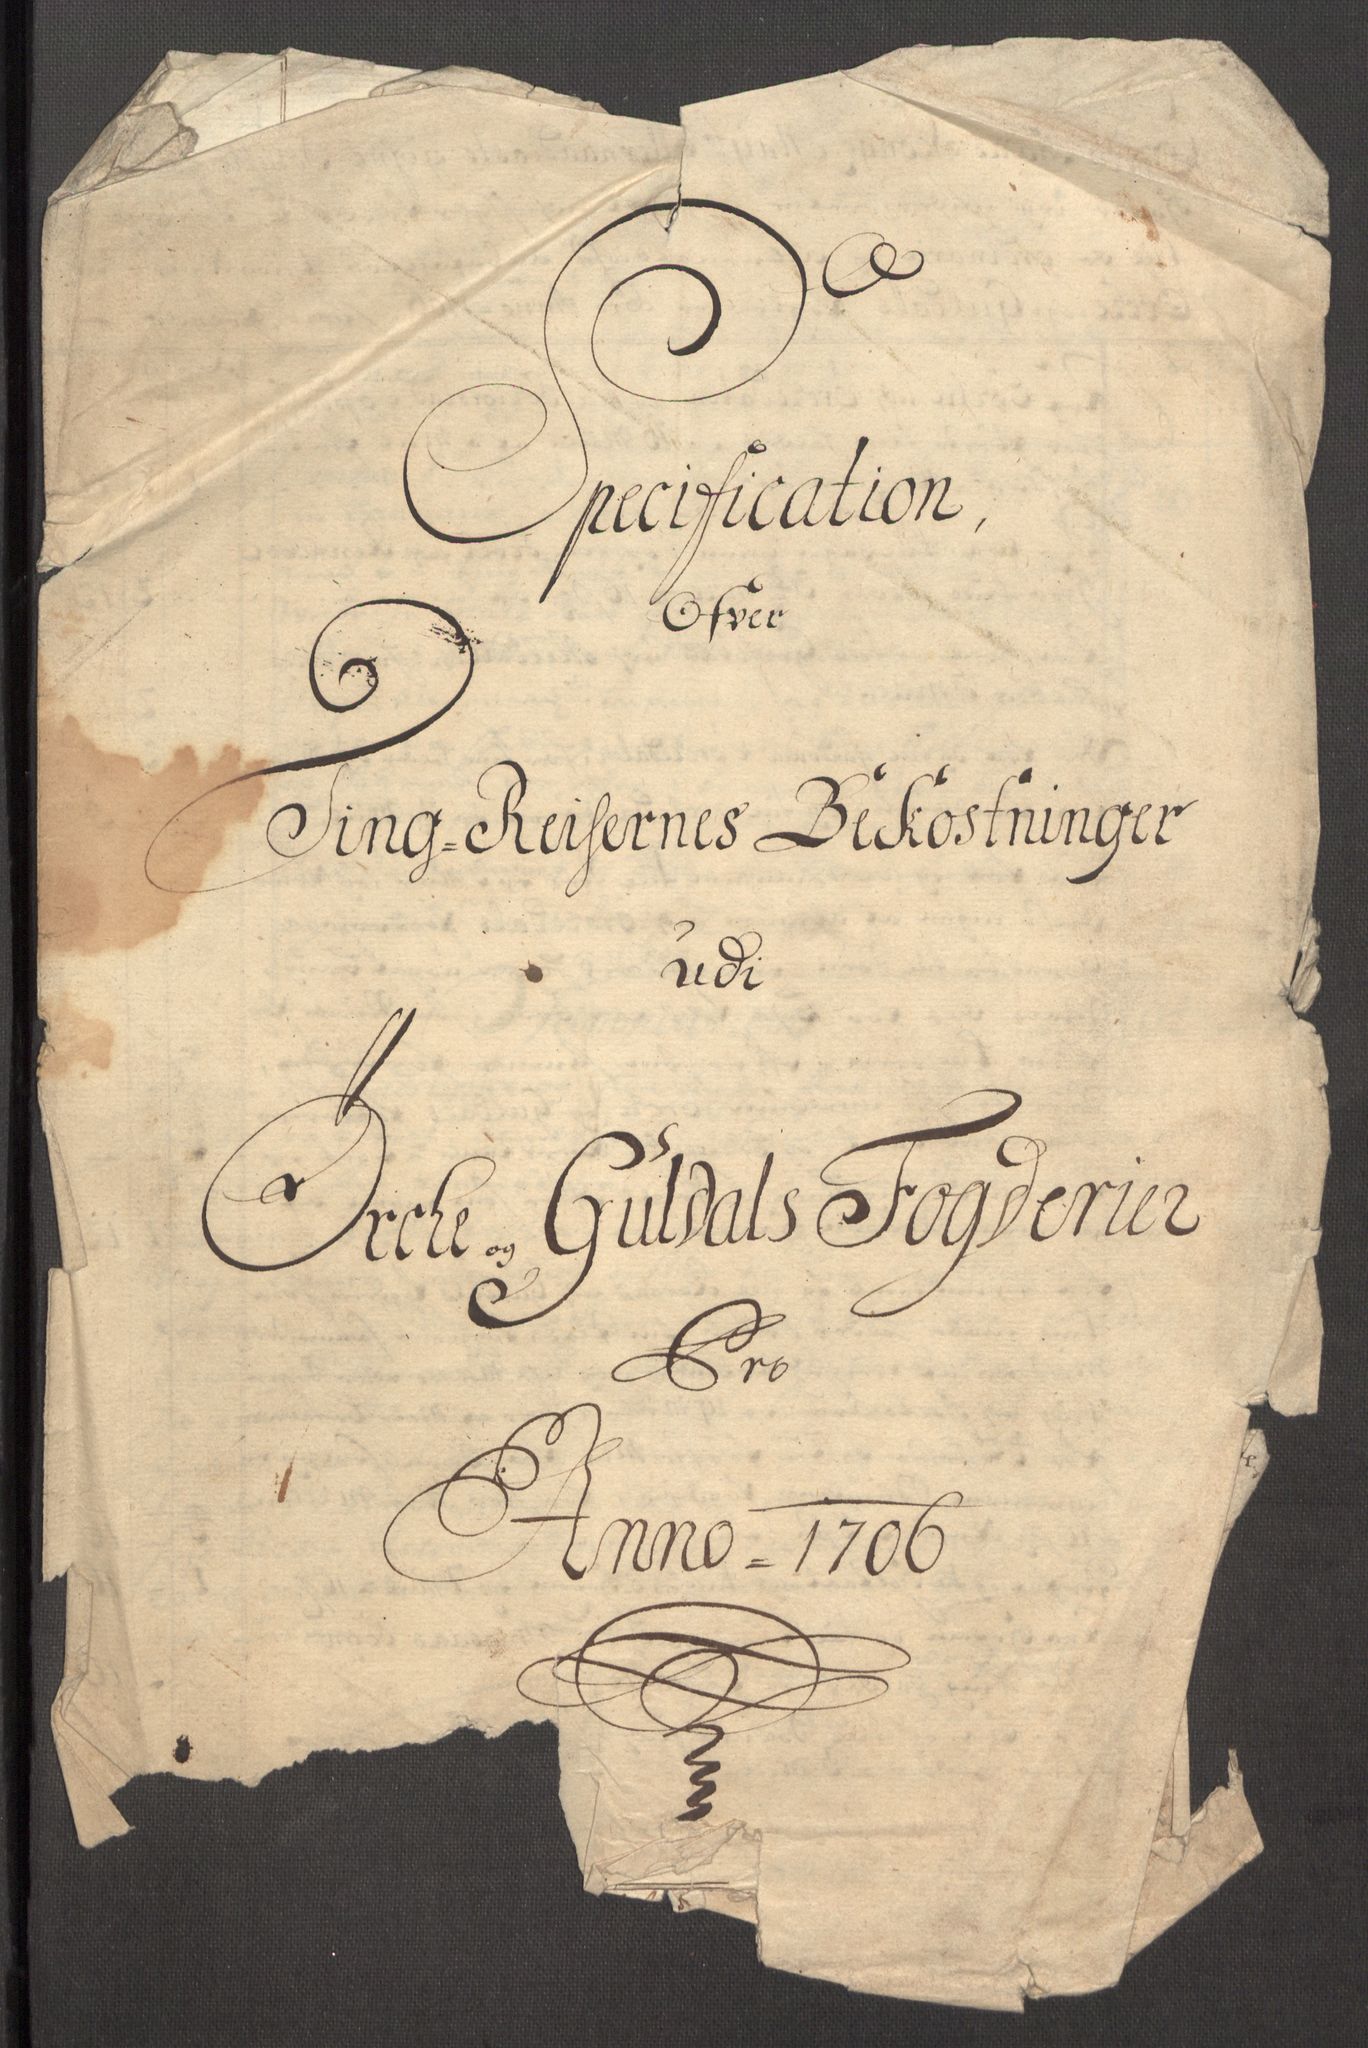 Specification,
Ofver
Ting=Reisernes Bekostninger
udi
Örche og Guldals Fogderier
Pro
Anno=1706